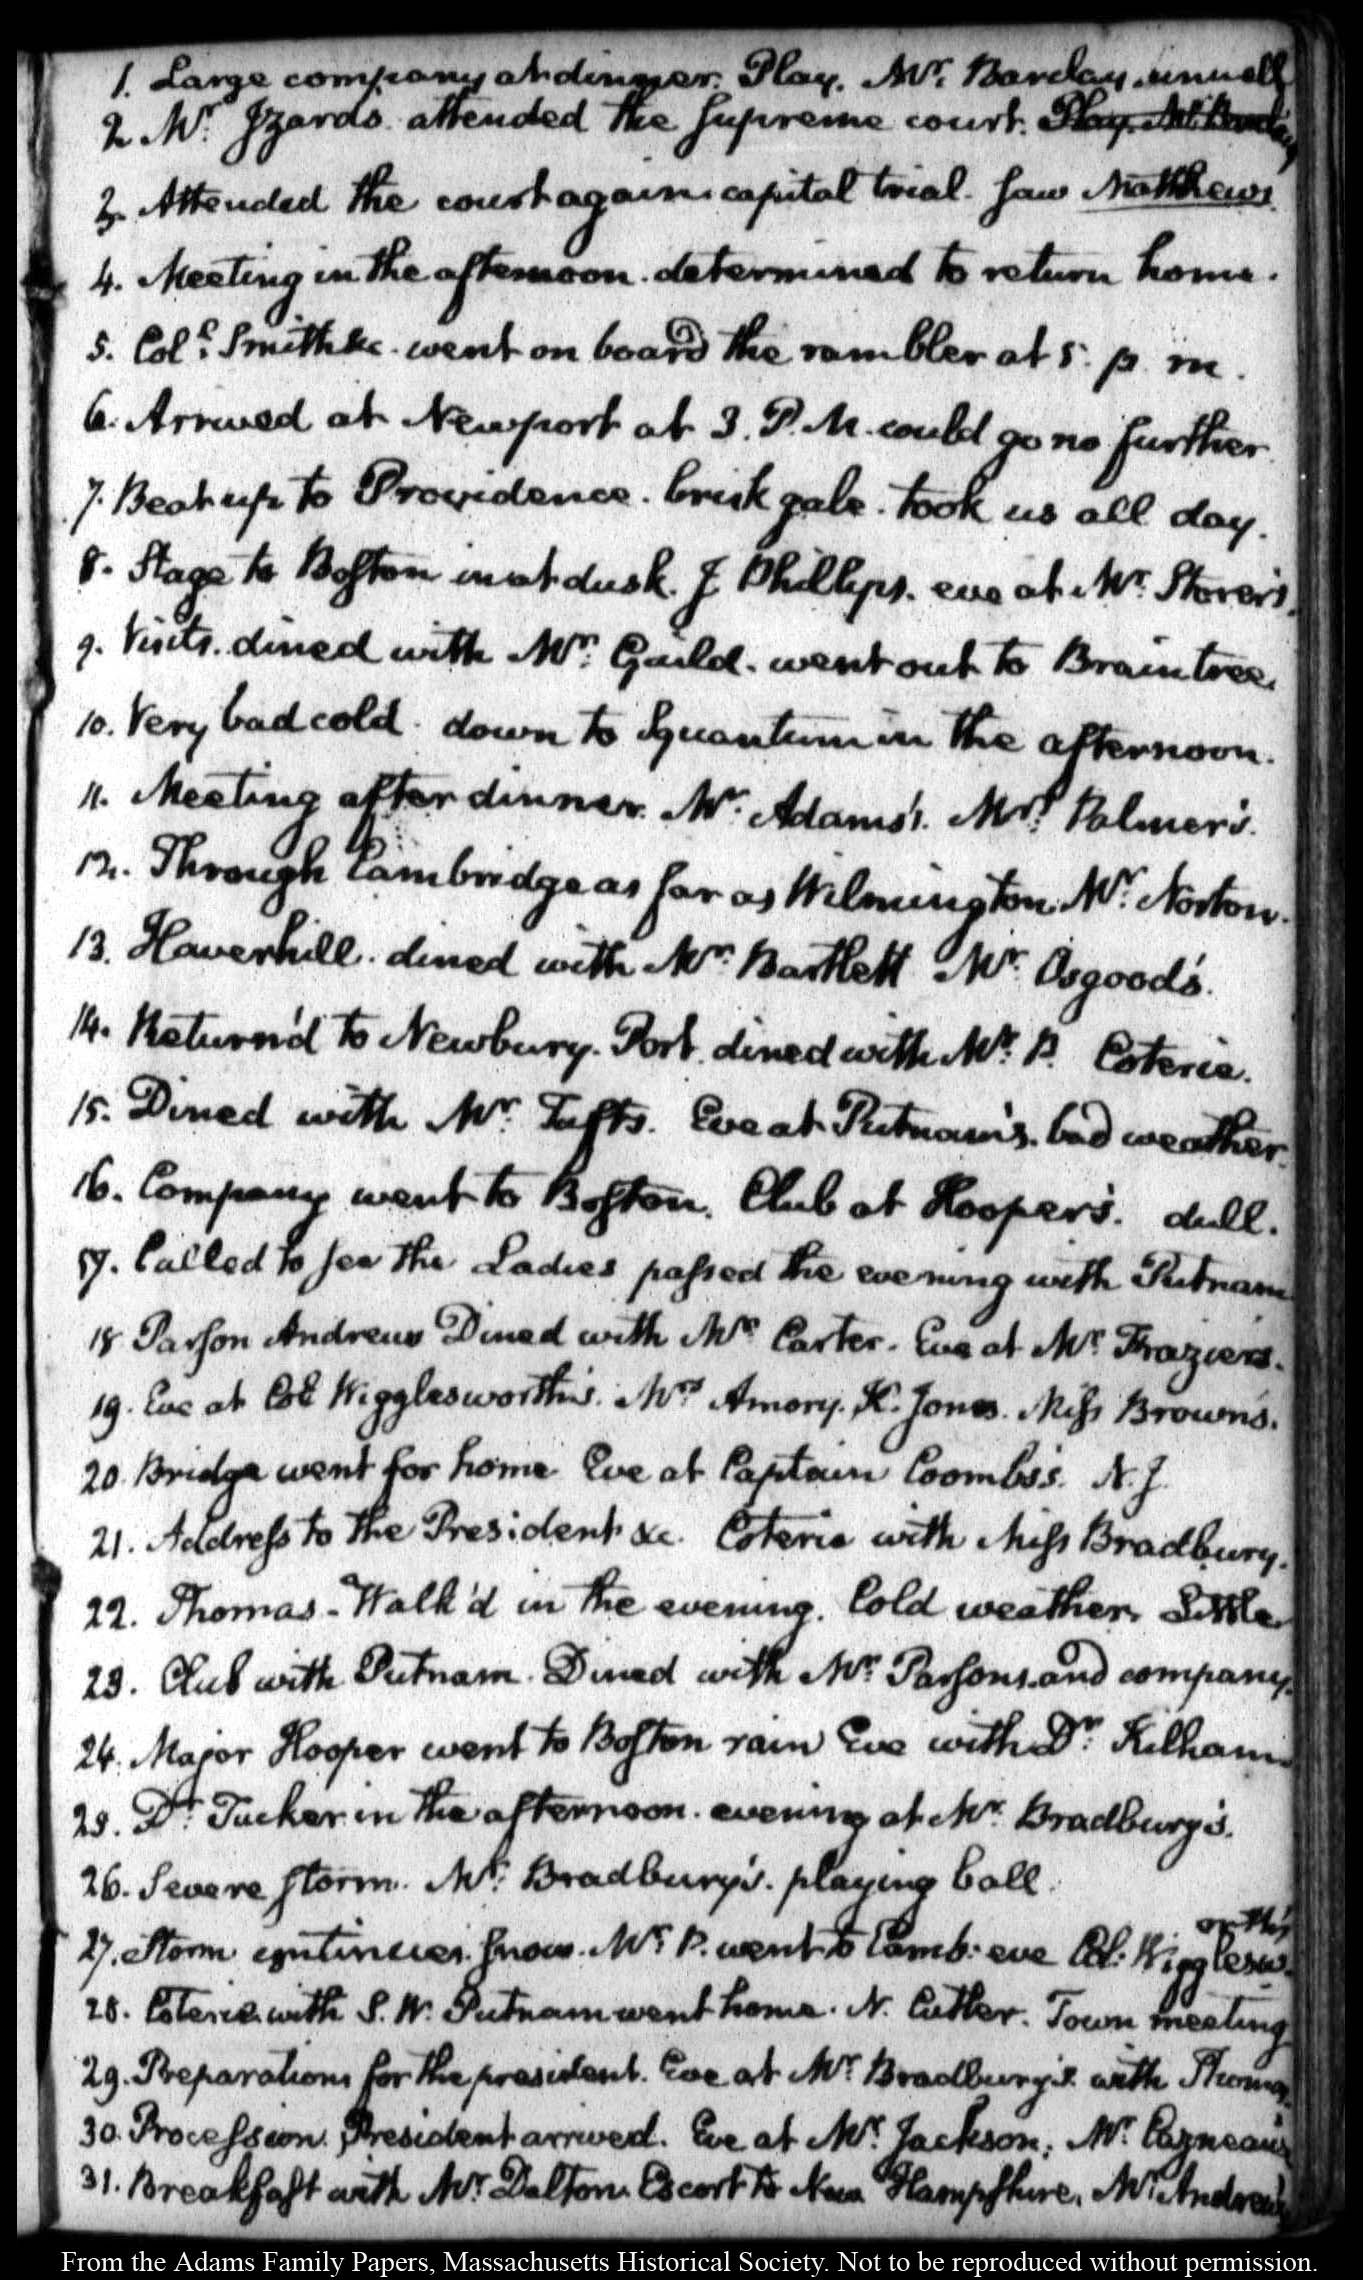 1. Large company at dinner. Play. Mr. Barclay unwell
2. Mr. Izards. attended the Supreme court. Play. Mr. Barclay
3. Attended the court again. capital trial. Saw Matthews
4. Meeting in the afternoon. determined to return home.
5. Coll. Smith &c. went on board the rambler at 5. p. m.
6. Arrived at Newport at 3. P. M. could go no further
7. Beat up to Providence. brisk gale. took us all day.
8. Stage to Boston in at dusk. J Phillips. eve at Mr. Storer's.
9. Visits. dined with Mr. Guild. went out to Braintree.
10. Very bad cold. down to Squantum in the afternoon.
11. Meeting after dinner. Mr. Adams's. Mrs. Palmer's.
12. Through Cambridge as far as Wilmington. Mr. Norton.
13. Haverhill. dined with Mr. Bartlett Mr. Osgood's.
14. Return'd to Newbury-Port. dined with Mr. P. Coterie.
15. Dined with Mr. Tufts. Eve at Putnam's. bad weather.
16. Company went to Boston. Club at Hooper's. dull.
17. Called to see the Ladies passed the evening with Putnam
18 Parson Andrews Dined with Mr. Carter. Eve at Mr. Frazier's.
19. Eve at Col. Wigglesworth's. Mrs Amory. K. Jones. Miss Brown's.
20. Bridge went for home Eve at Captain Coombs's. N. J.
21. Address to the President &c. Coterie with Miss Bradbury.
22. Thomas - Walk'd in the evening. Cold weather. Little
23. Club with Putnam. Dined with Mr. Parsons and company.
24. Major Hooper went to Boston rain Eve with Dr. Kilham.
25. Dr. Tucker in the afternoon. evening at Mr. Bradbury's.
26. Severe storm. Mr. Bradbury's. playing ball.
27. Storm continues. snow. Mr. P. went to Camb: eve Col. Wigglesw-
orth's
28. Coterie with S. W. Putnam went home. N. Cutler. Town meeting
29. Preparations for the president. Eve at Mr. Bradbury's with Thomas.
30. Procession. President arrived. Eve at Mr. Jackson. Mr. Cazneau's
31. Breakfast with Mr. Dalton. Escort to New Hampshire. Mr. Andrews
From the Adams Family Papers, Massachusetts Historical Society. Not to be reproduced without permission.